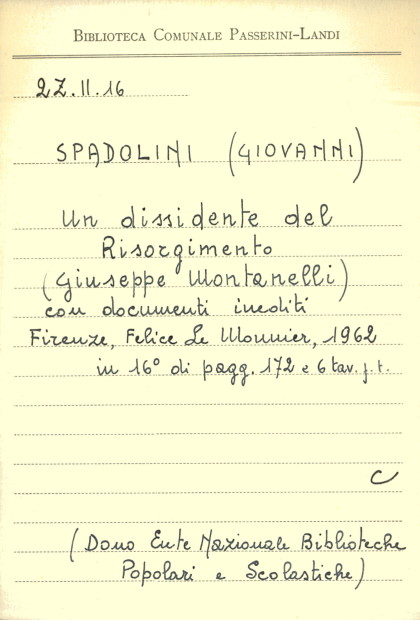 BIBLIOTECA COMUNALE PASSERINI-LANDI
2Z.II.16
SPADOLINI (GIOVANNI)
Un dissidente del
Risorgimento
(Giuseppe Montanelli)
con documenti inediti
Firenze, Felice Le Monnier, 1962
in 16° di pagg. 172 e 6 tav. f. t.
C
(Dono Ente Nazionale Biblioteche
Popolari e Scolastiche)